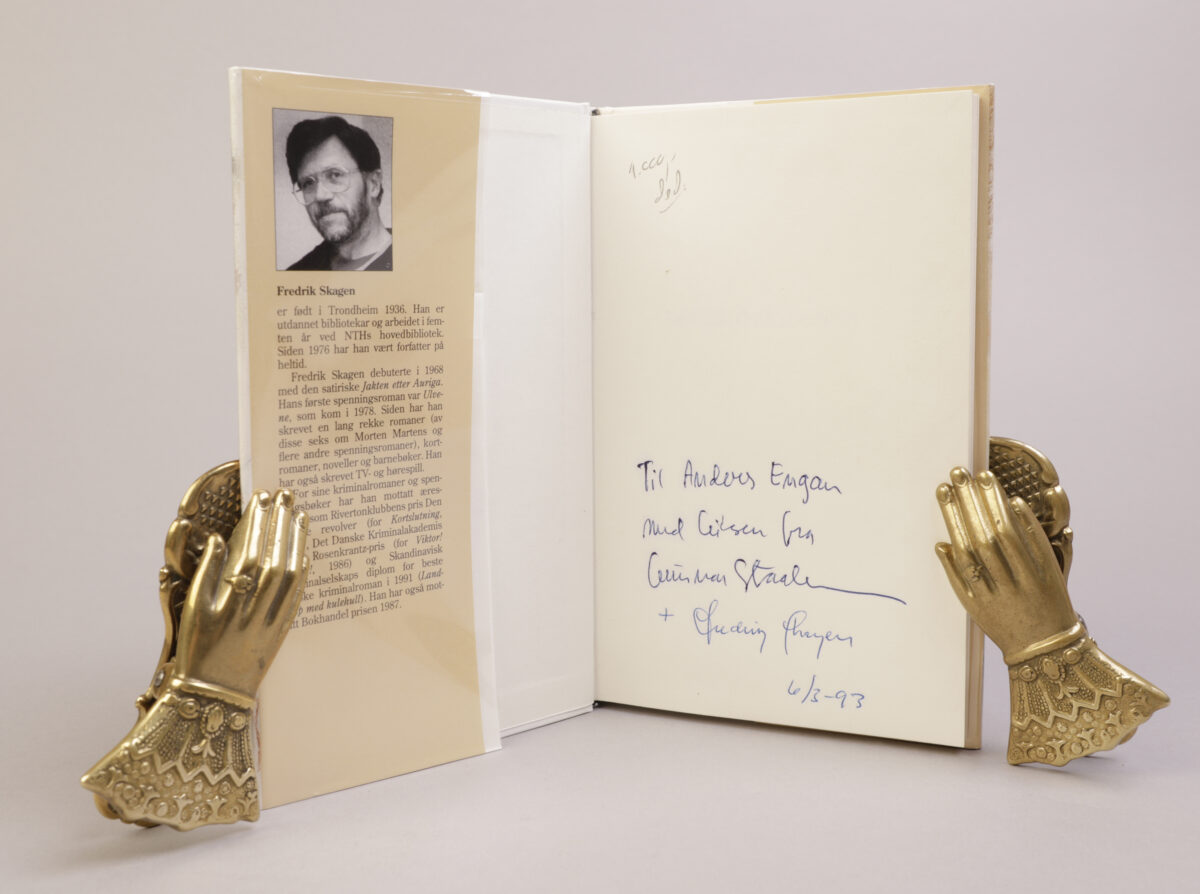 Fredrik Skagen
er født i Trondheim 1936. Han er
utdannet bibliotekar og arbeidet i fem-
ten år ved NTHs hovedbibliotek.
Siden 1976 har han vært forfatter på
heltid.
Fredrik Skagen debuterte i 1968
med den satiriske Jakten etter Auriga.
Hans første spenningsroman var Ulve-
ne, som kom i 1978. Siden har han
skrevet en lang rekke romaner (av
disse seks om Morten Martens og
flere andre spenningsromaner), kort-
romaner, noveller og barnebøker. Han
har også skrevet TV- og hørespill.
For sine kriminalromaner og spen-
gsbøker har han mottatt æres-
som Rivertonklubbens pris Den
revolver (for Kortslutning,
Det Danske Kriminalakademis
Rosenkrantz-pris (for Viktor!
!, 1986) og Skandinavisk
nalselskaps diplom for beste
ke kriminalroman i 1991 (Land-
p med kulehull). Han har også mot-
tt Bokhandel prisen 1987.
ded.
Til Anders Engan
med hilsen fra
Gunnar Staalesen
+ Fredrik Skagen
6/3-93